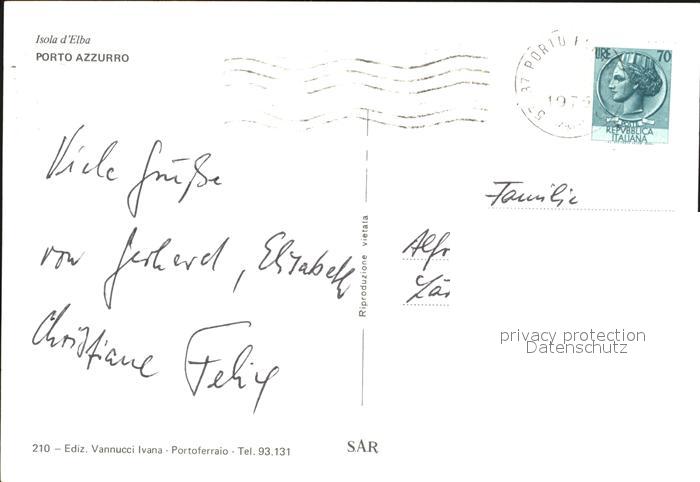 Isola d'Elba
PORTO AZZURRO
Viele Grüße
von Gerhard, Elisabeth
Christiane Felix
Riproduzione vietata
57037 PORTO
197
LIRE 70
POSTE
REPVBBLICA
ITALIANA
Familie
Alfr
privacy protection
Datenschutz
210 – Ediz. Vannucci Ivana · Portoferraio · Tel. 93.131
SAR